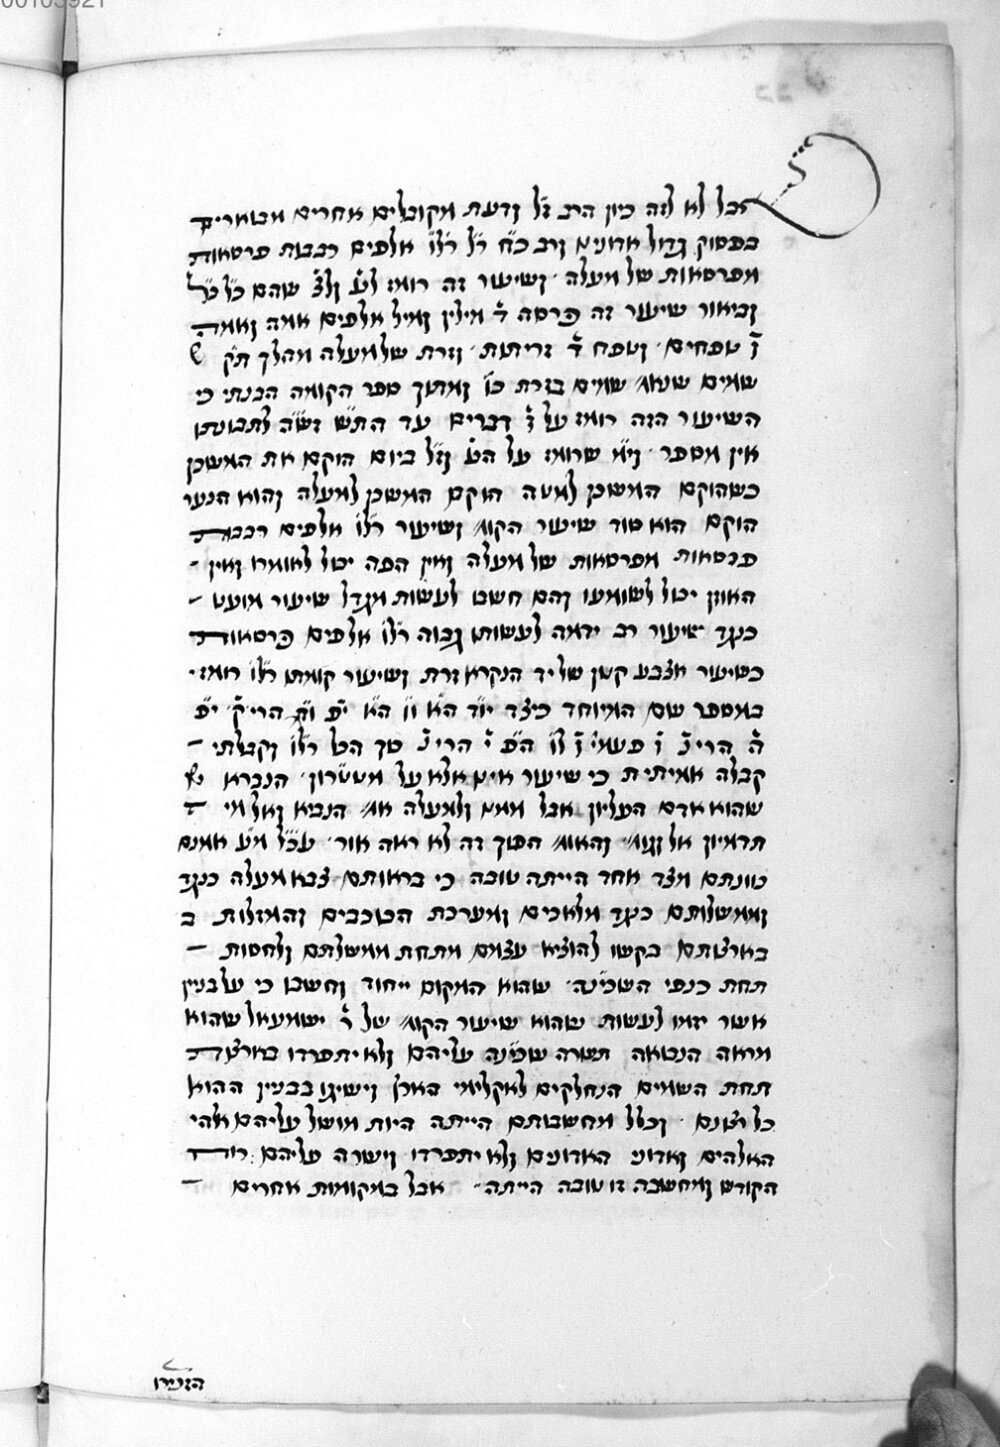 אבל לא לזה כיון הרב ז״ל ודעת מקובלים אחרים מבוארים
בפסוק גדול אדונינו ורב כ״ח ר״ל רל״ו אלפים רבבות פרסאות
מפרסאות של מעלה ושיעור זה רומז לע׳ ולצ׳ שהם כ״ל כ״ל
וביאור שיעור זה פרסה ד׳ מילין ומיל אלפים אמה ואמה
ו׳ טפחים וטפח ד׳ זריתות וזרת של מעלה מהלך ת״ק ש
שמים שנא׳ שמים בזרת כו׳ ומתוך ספר הקומה הבנתי כי
השיעור הזה רומז על ד׳ דברים עד התי״ש וש״ה לתבונתו
אין מספר וי״א שרומז על הט׳ וז״ל ביום הוקם את המשכן
כשהוקם המשכן למטה הוקם המשכן למעלה והוא הנער
הוקם הוא סוד שיעור הקומ׳ ושיעור רל״ו אלפים רבבות
פרסאות מפרסאות של מעלה ואין הפה יכול לאומרו ואין
האוזן יכול לשומעו והם חשבו לעשות מגדל שיעור מועט
כנגד שיעור רב ידמה לעשותו גבוה רל״ו אלפים פרסאות
כשיעור אצבע קטן של יד הנקרא זרת ושיעור קומתו רל״ו רומז
במספר שם המיוחד כיצד יו״ד ה״א ו״ו ה״א י״פ ו״ק הרי ק׳ י״פ
ה׳ הרי נ׳ ו׳ פעמי׳ ו׳ ל״ו ה״פ י׳ הרי נ׳ סך הכל רל״ו וקבלתי
קבלה אמיתית כי שיעור אינו אלא על מטטרון הנברא
שהוא אדם העליון אבל ממנו ולמעלה אמ׳ הנביא ואל מי
תדמיון אל וגומ׳ והאומ׳ הפוך זה לא ראה אור עכ״ל מ״ע אמנם
כוונתם מצד אחד הייתה טובה כי בראותם צבא מעלה כנגד
וממשלותם כנגד מלאכים ומערכת הכוכבים והמזלות ב
בארצותם בקשו להוציא עצמם מתחת ממשלתם ולחסות
תחת כנפי השכינה שהוא המקום ייחוד וחשבו כי על בנין
אשר יזמו לעשות שהוא שיעור הקומ׳ של ר׳ ישמעאל שהוא
מראה הנבואה תשרה שכינה עליהם ולא יתפרדו בארצות
תחת השמים הנחלקים לאקלימי הארץ וישיגו בבנין ההוא
כל רצונם וכלל מחשבותם הייתה היות מושל עליהם אלהי
האלהים ואדוני האדונים ולא יתפרדו וישרה עליהם רוח
הקודש ומחשבה זו טובה הייתה אבל במקומות אחרים
הזכירו